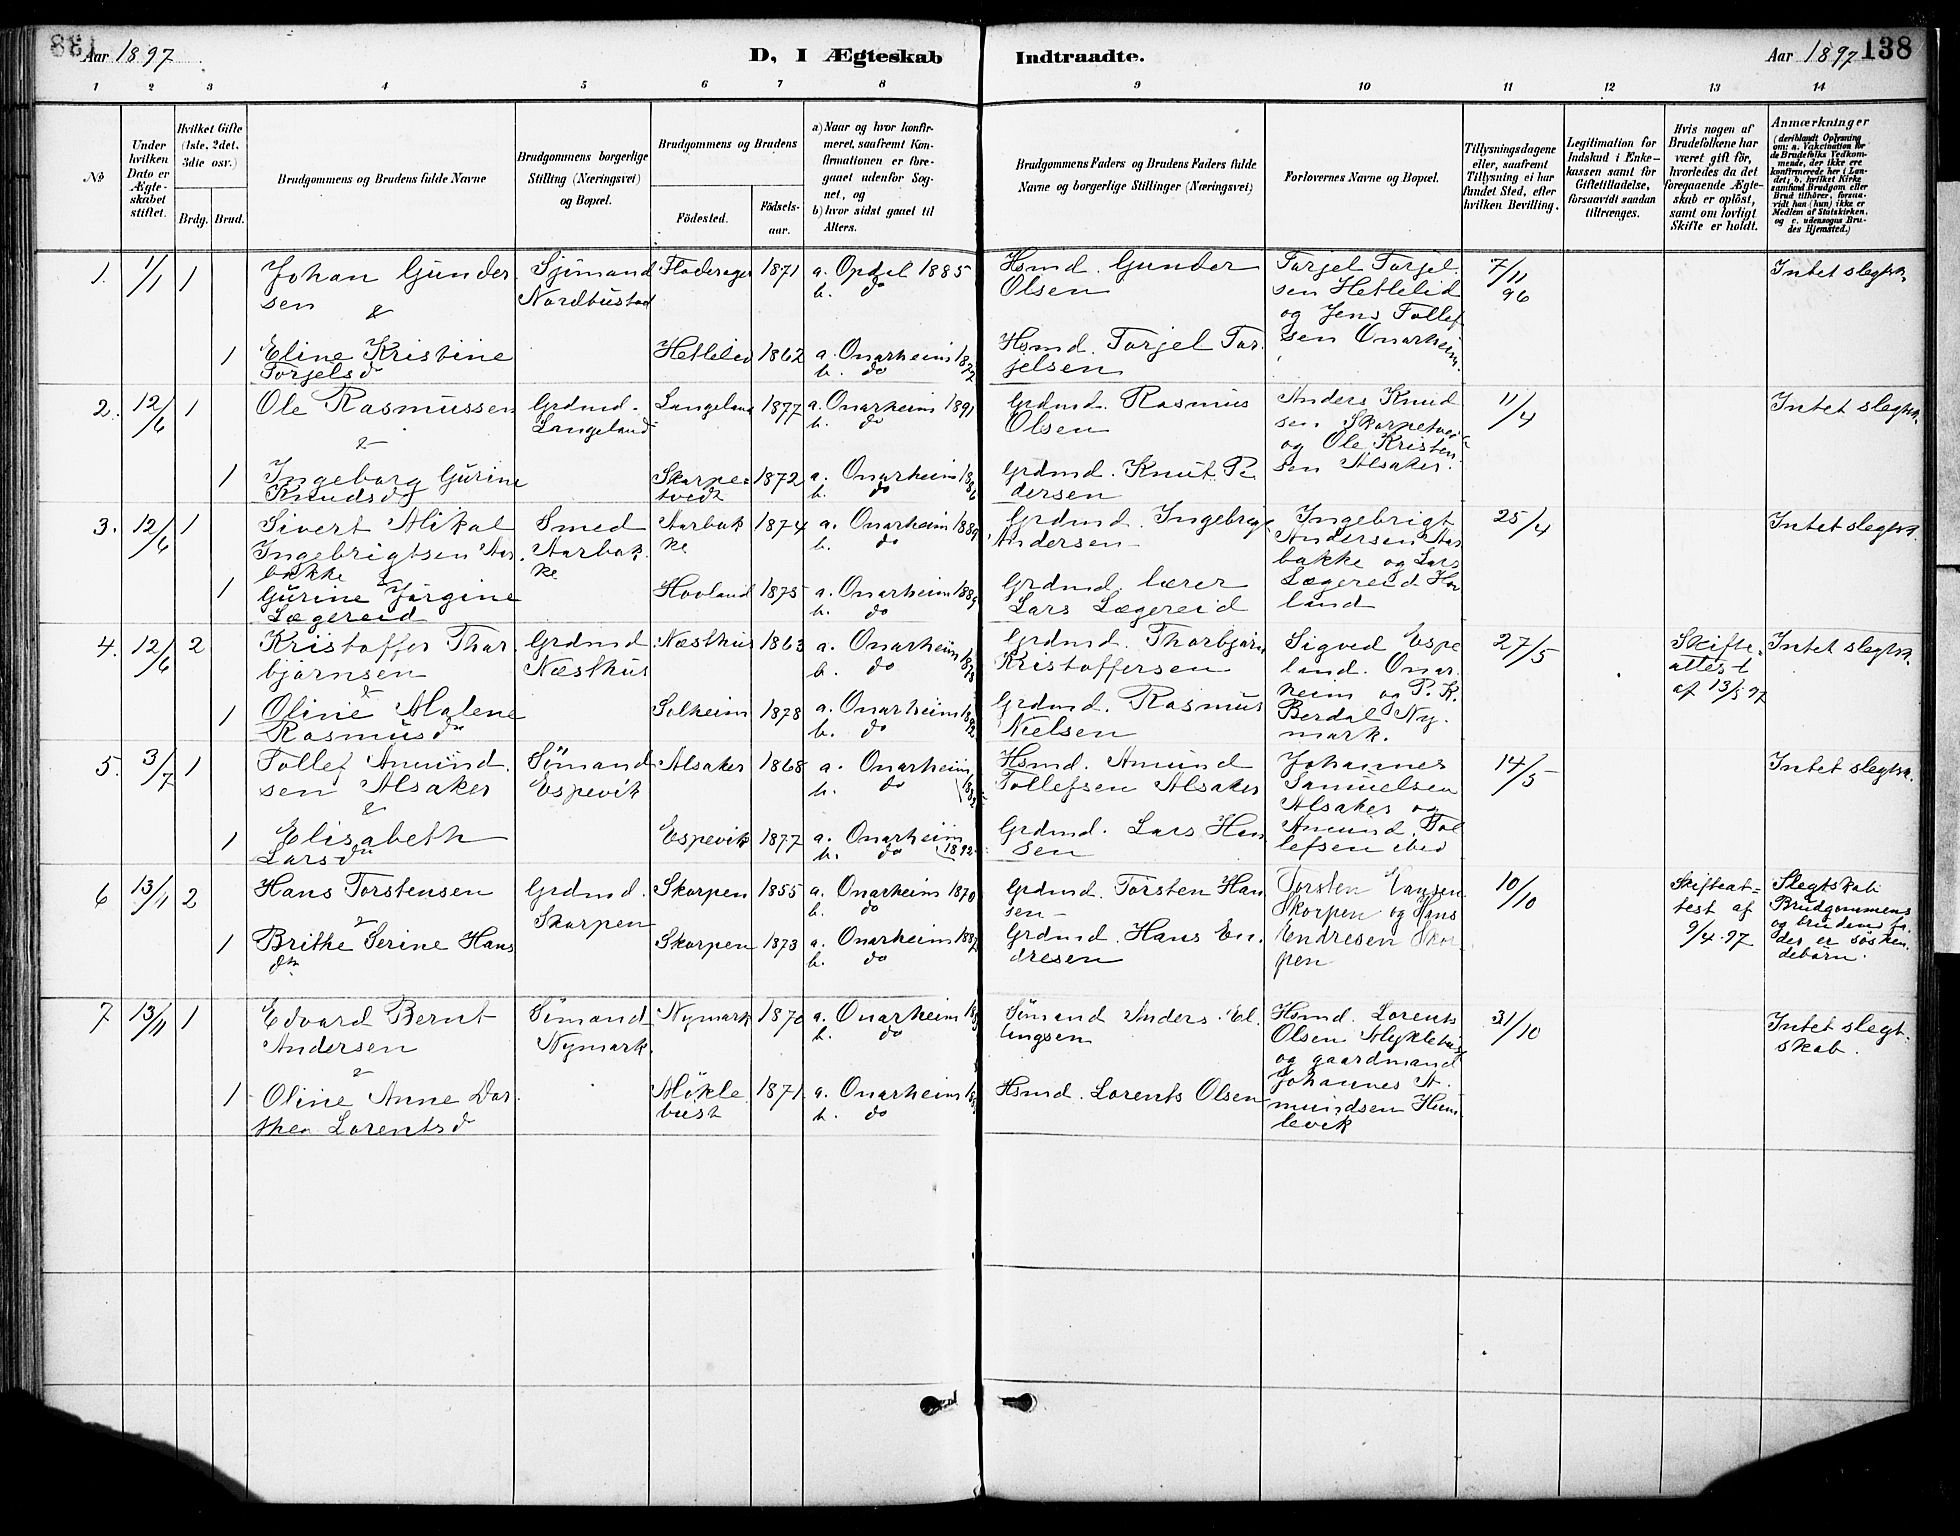 Aar 1897
D, I Ægteskab
Indtraadte.
Aar 1897
138
1 2 3 4 5 6 7 8 9 10 11 12 13 14
No
Under hvilken Dato er Ægteskabet stiftet.
Hvilket Gifte (1ste, 2det, 3die osv.)
Brdg. Brud.
Brudgommens og Brudens fulde Navne
Brudgommens borgerlige Stilling (Næringsvei) og Bopæl.
Brudgommens og Brudens
Födested.
Födselsaar.
a) Naar og hvor konfirmeret, saafremt Konfirmationen er foregaaet udenfor Sognet, og
b) hvor sidst gaaet til Alters.
Brudgommens Faders og Brudens Faders fulde Navne og borgerlige Stillinger (Næringsvei)
Forlovernes Navne og Bopæl.
Tillysningsdagene eller, saafremt Tillysning ei har fundet Sted, efter hvilken Bevilling.
Legitimation for Indskud i Enkekassen samt for Giftetilladelse, forsaavidt saadan tiltrænges.
Hvis nogen af Brudefolkene har været gift för, hvorledes da det foregaaende Ægteskab er oplöst, samt om lovligt Skifte er holdt.
Anmærkninger
(deriblandt Oplysning om: a. Vakcination for de Brudefolks Vedkommende, der ikke ere konfirmerede her i Landet; b. hvilket Kirkesamfund Brudgom eller Brud tilhörer, forsaavidt han (hun) ikke er Medlem af Statskirken, og c. udensogns Brudes Hjemsted.)
1. 1/1 1 Johan Gundersen & Sjömand Nordhustad 1871 a. Opdal 1885 b. do Hsmd. Gunder Olsen Torjel Torjelsen Hetlelid og Jens Tollefsen Onarheim. 7/11 96 Intet slegtsk.
1 Eline Kristine Torjelsd Hetlelid 1862 a. Onarheim 1877 b. do Hsmd. Torjel Torjelsen
2. 12/6 1 Ole Rasmussen & Grdmd. Langeland Langeland 1877 a. Onarheim 1891 b. do Grdmd. Rasmus Olsen Anders Knudsen Skarpetvei og Ole Kristensen Alsaker. 11/4 Intet slegtsk.
1 Ingeborg Gurine Knudsd Skarpetvedt 1872 a. Onarheim 1886 b. do Grdmd. Knut Pedersen
3. 12/6 1 Sivert Mikal Ingebrigtsen Aarbakke & Smed Aarbakke Aarbakke 1874 a. Onarheim 1889 b. do Grdmd. Ingebrigt Andersen Ingebrigt Andersen Aarbakke og Lars Lægereid Hovland 25/4 Intet slegtsk.
1 Gurine Jörgine Lægereid Hovland 1875 a. Onarheim 1889 b. do Grdmd. lærer Lars Lægereid
4. 12/6 2 Kristoffer Thorbjörnsen & Grdmd Næsthus Næsthus 1863 a. Onarheim 1878 b. do Grdmd. Thorbjörn Kristoffersen Sigved Espeland. Onarheim og P. K. Berdal Nymark. 27/5 Skifteattest af 13/5 97 Intet slegtsk.
1 Oline Malene Rasmusdtr Solheim 1878 a. Onarheim 1892 b. do Grdmd. Rasmus Nielsen
5. 3/7 1 Tollef Amundsen Alsaker & Sömand Espevik Alsaker 1868 a. Onarheim b. do Hsmd. Amund Tollefsen Alsaker Johannes Samuelsen Alsaker og Amund Tollefsen ibid 14/5 Intet slegtsk.
1 Elisabeth Larsdtr Espevik 1877 a. Onarheim 1892 b. do Grdmd. Lars Hansen
6 13/11 2 Hans Torstensen & Grdmd. Skorpen Skorpen 1855 a. Onarheim 1870 b. do Grdmd. Torsten Hansen Torsten Hansen Skorpen og Hans Endresen Skorpen 10/10 Skifteattest af 9/4 97 Slegtskab: Brudgommens og brudens fader er söskendebarn.
1 Brithe Serine Hansdtr Skorpen 1873 a. Onarheim 1887 b. do Grdmd. Hans Endresen
7 13/11 1 Edvard Bernt Andersen & Sömand Nymark. Nymark 1870 a. Onarheim b. do Sömand Anders Ellingsen Hsmd. Lorents Olsen Myklebust og gaardmand Johannes Amundsen Humlevik 31/10 Intet slegtskab.
1 Oline Anne Dorthea Lorentsd Möklebust 1871 a. Onarheim b. do Hsmd. Lorents Olsen